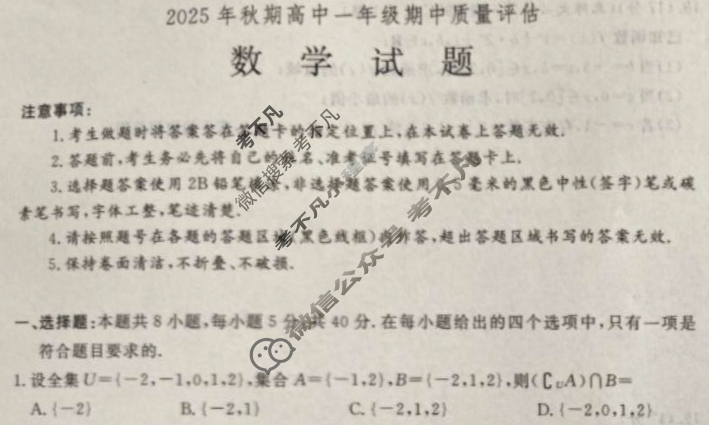 2025年秋期高中一年级期中质量评估
数学试题
注意事项:
1.考生做题时将答案答在答题卡的指定位置上,在本试卷上答题无效.
2.答题前,考生务必先将自己的姓名、准考证号填写在答题卡上.
3.选择题答案使用2B铅笔填涂,非选择题答案使用0.5毫米的黑色中性(签字)笔或碳
素笔书写,字体工整,笔迹清楚.
4.请按照题号在各题的答题区域(黑色线框)内作答,超出答题区域书写的答案无效.
5.保持卷面清洁,不折叠、不破损.
一、选择题:本题共8小题,每小题5分,共40分.在每小题给出的四个选项中,只有一项是
符合题目要求的.
1.设全集U={-2,-1,0,1,2},集合A={-1,2},B={-2,1,2},则(∁UA)∩B=
A.{-2} B.{-2,1} C.{-2,1,2} D.{-2,0,1,2}
微信搜索考不凡
考不凡小程序
微信公众号考不凡